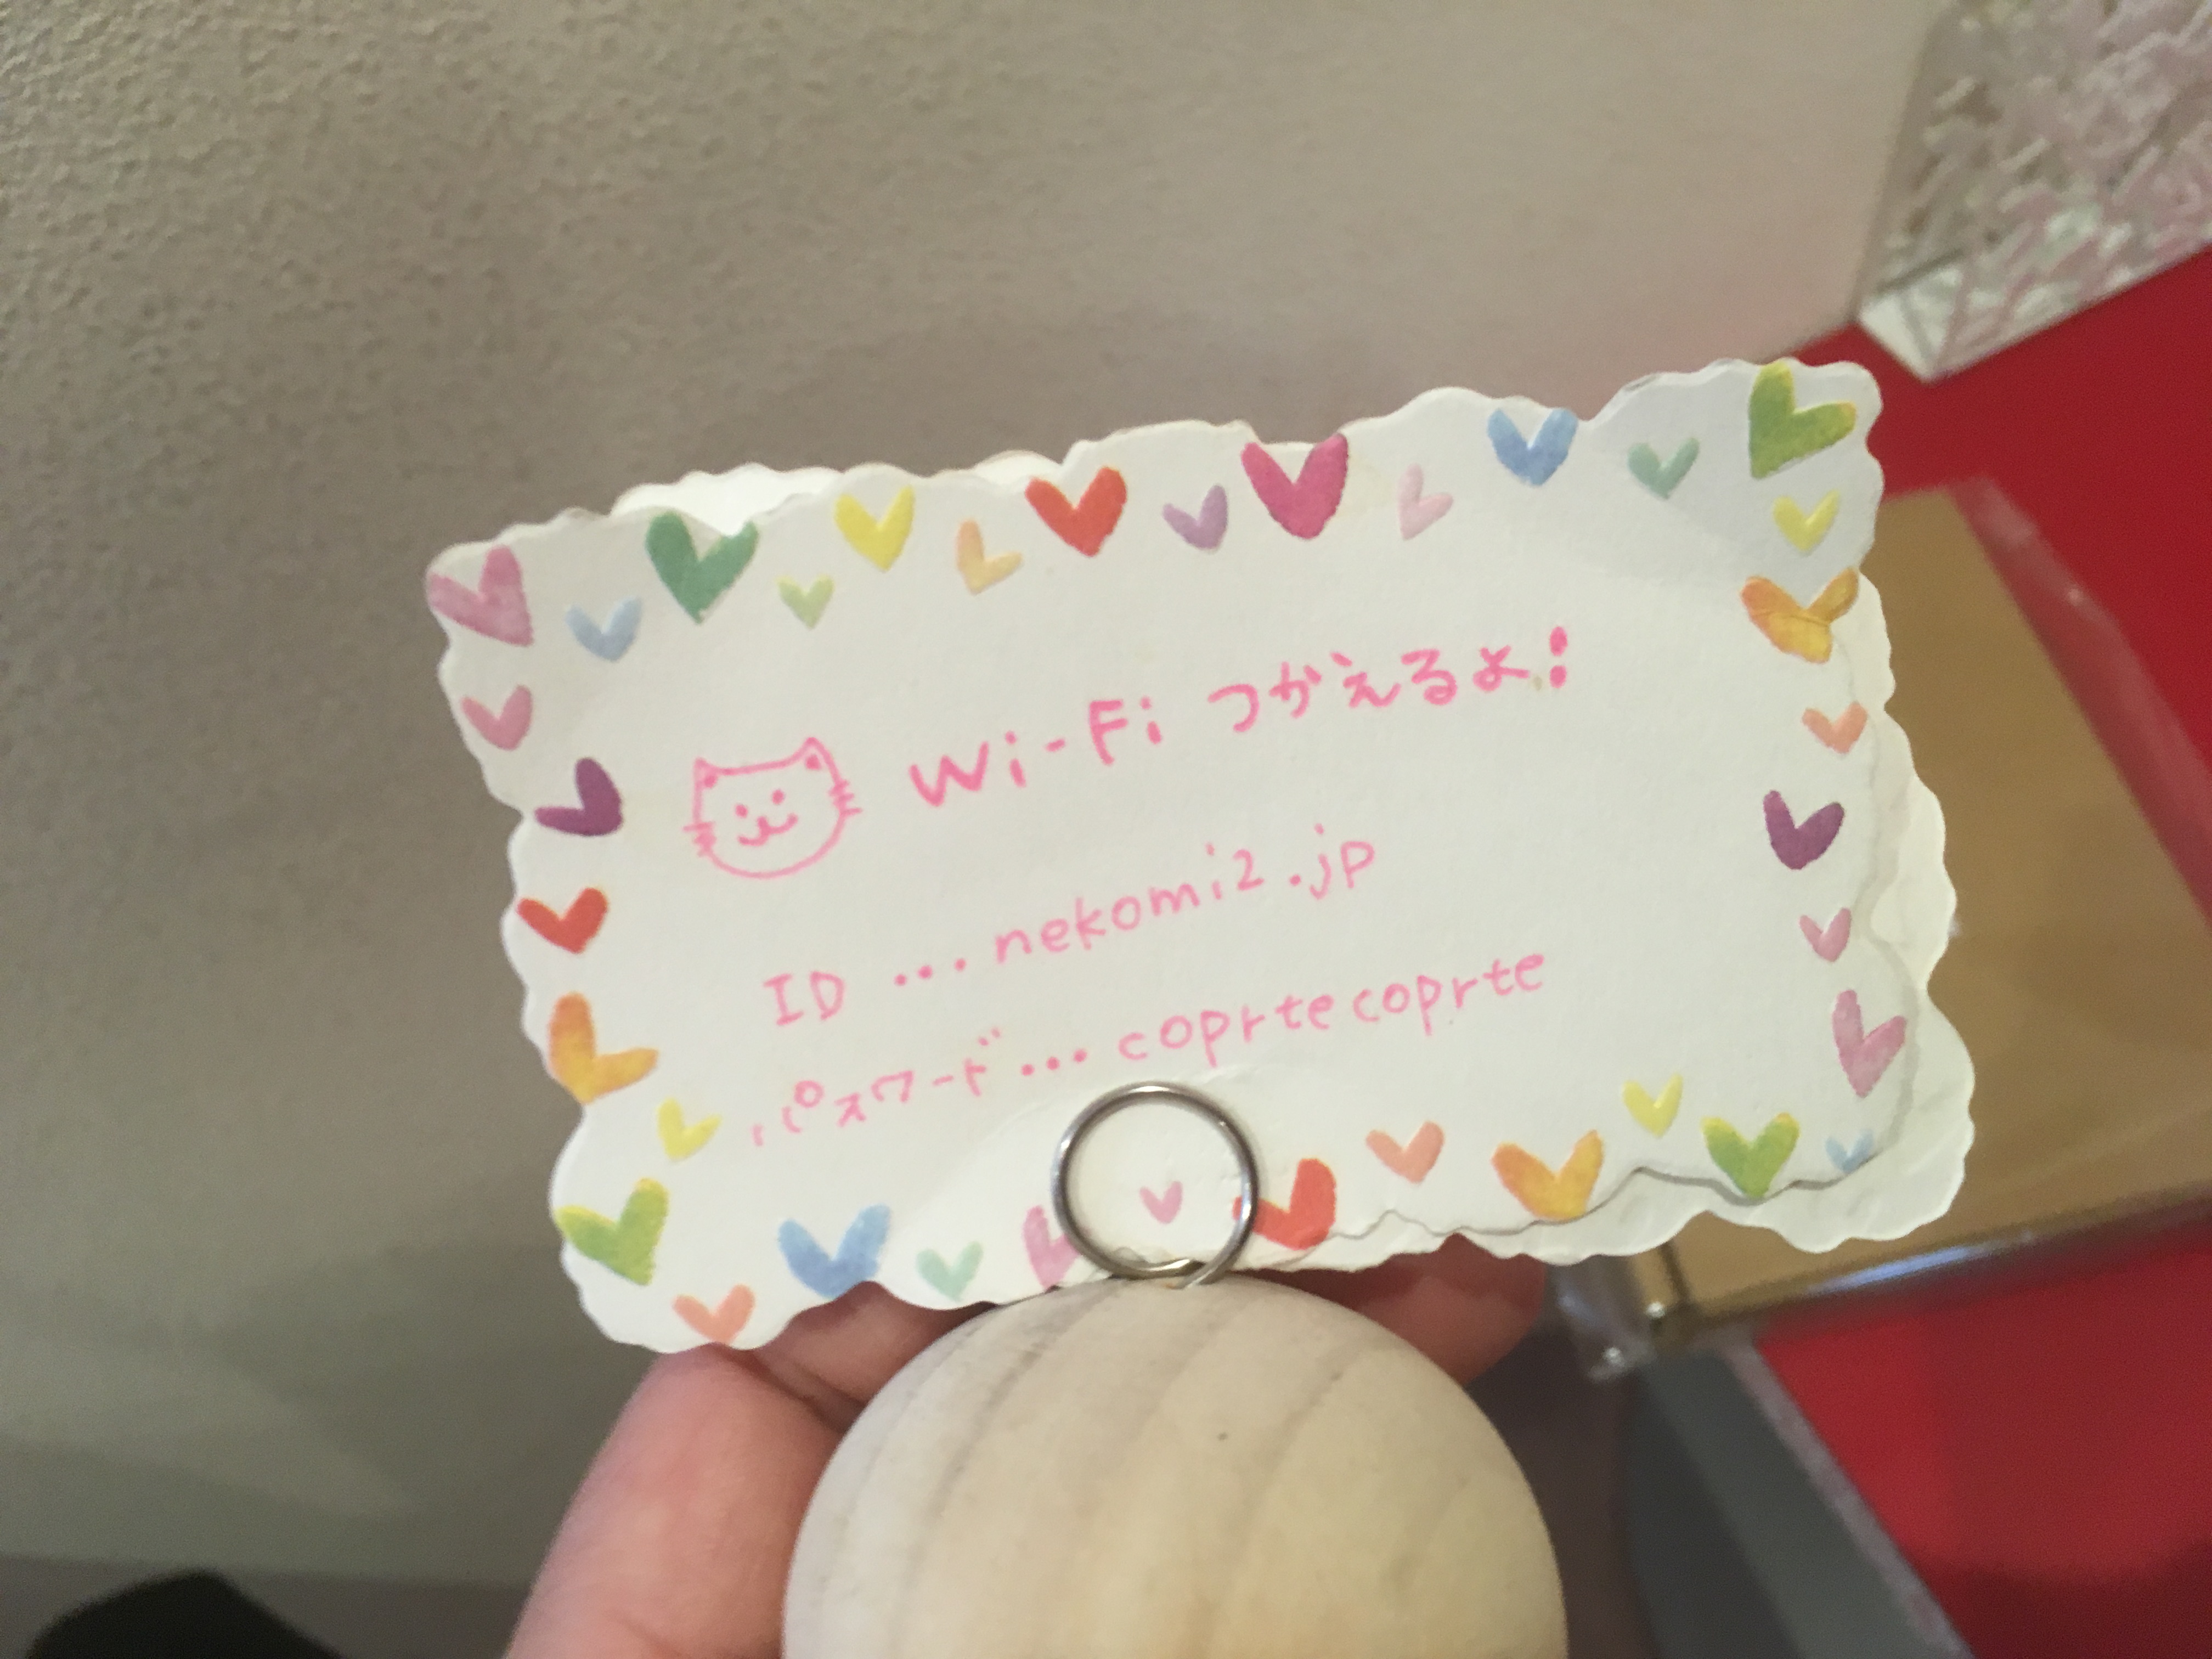 Wi-Fi つがえるよ!
ID ... nekomi2.jp
パスワード ... coprtecoprte